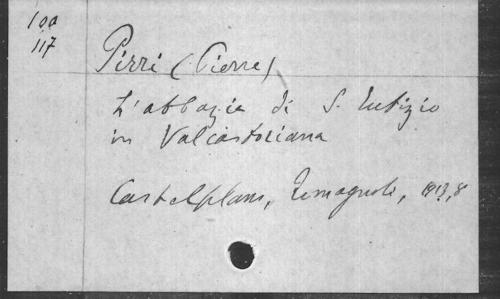 10a
117
Pirri (Pierre)
L'abbazia di S. Eutizio
in Valcastoriana
Castelplano, Romagnoli, 1913, 8